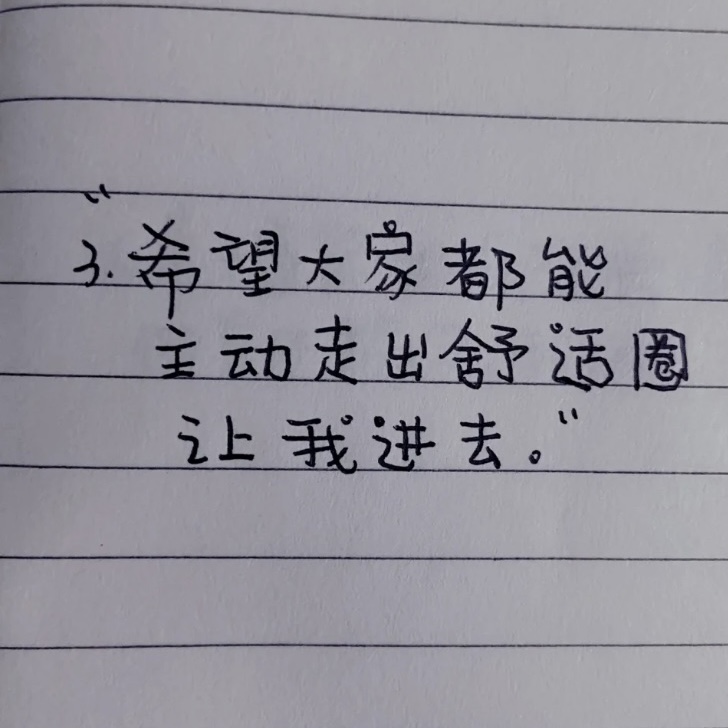 3.“希望大家都能
主动走出舒适圈
让我进去。”